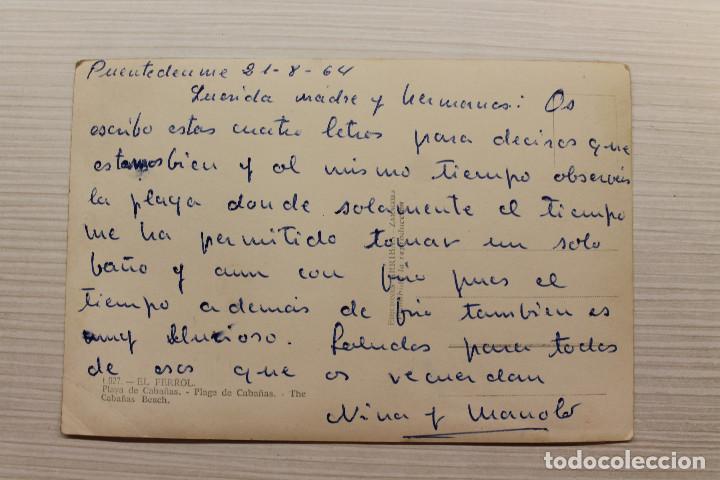 Puentedeume 21-8-64
Querida madre y hermanos: Os
escribo estas cuatro letras para deciros que
estamos bien y al mismo tiempo observeis
la playa donde solamente el tiempo
me ha permitido tomar un solo
baño y aun con frio pues el
tiempo además de frio tambien es
muy lluvioso. Saludos para todos
de esos que os recuerdan
Nina y Manolo
1.027. - EL FERROL.
Playa de Cabañas. - Plage de Cabañas. - The
Cabañas Beach.
Prohibida la reproducción
todocoleccion.net